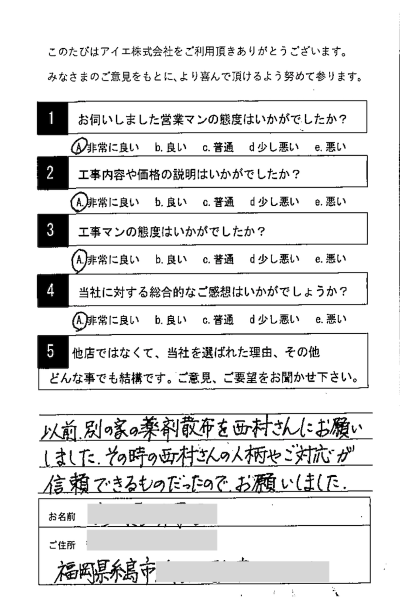 このたびはアイエ株式会社をご利用頂きありがとうございます。
みなさまのご意見をもとに、より喜んで頂けるよう努めて参ります。
1 お伺いしました営業マンの態度はいかがでしたか？
A.非常に良い b.良い c.普通 d少し悪い e.悪い
2 工事内容や価格の説明はいかがでしたか？
A.非常に良い b.良い c.普通 d少し悪い e.悪い
3 工事マンの態度はいかがでしたか？
A.非常に良い b.良い c.普通 d少し悪い e.悪い
4 当社に対する総合的なご感想はいかがでしょうか？
A.非常に良い b.良い c.普通 d少し悪い e.悪い
5 他店ではなくて、当社を選ばれた理由、その他
どんな事でも結構です。ご意見、ご要望をお聞かせ下さい。
以前、別の家の薬剤散布を西村さんにお願い
しました。その時の西村さんの人柄やご対応が
信頼できるものだったので、お願いしました。
お名前
ご住所
福岡県糸島市